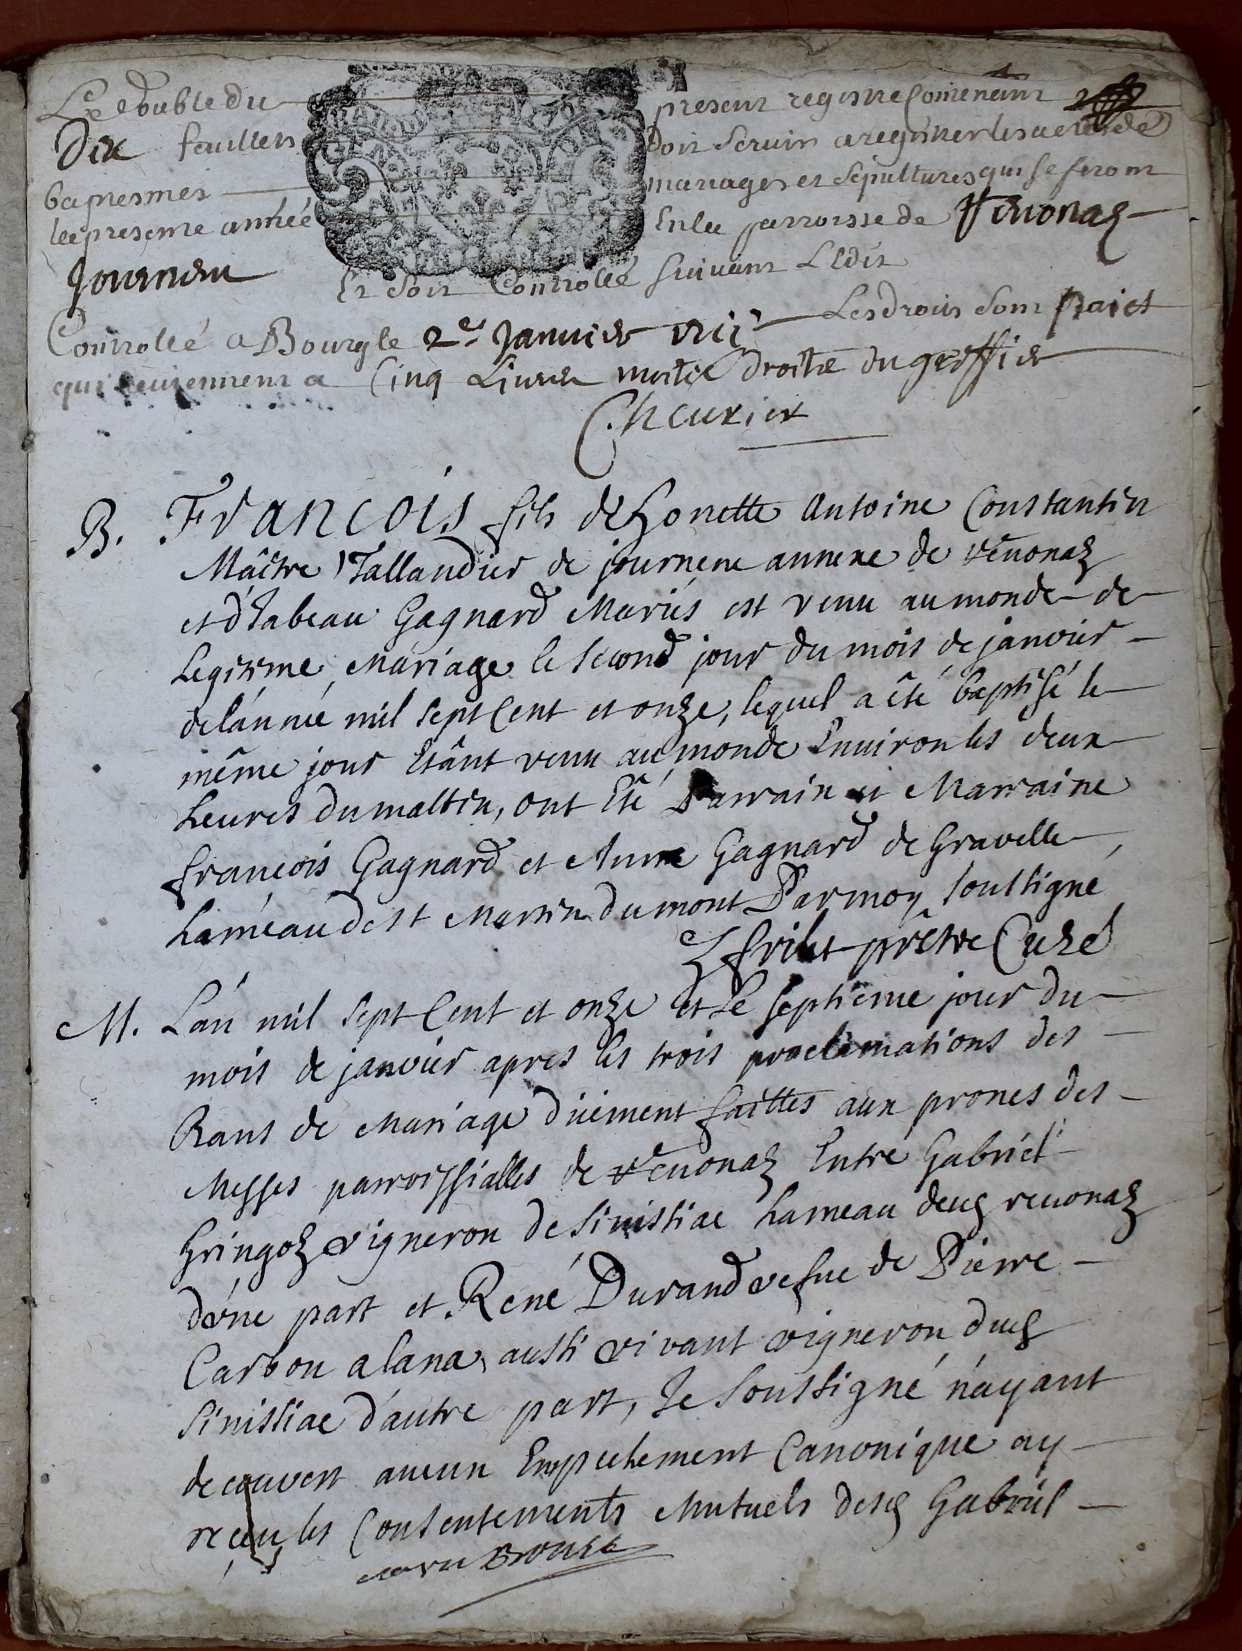 Le double du present registre Contenant
Dix feuillets Doit servir a registrer les actes de
baptesmes mariages et sepultures qui se feront
la presente année En la parroisse de Veuonas
Journan Et soit Controllé suivant L'Edit
Controllé a Bourg le 2e Janvier Les droits sont paies
qui reviennent a Cinq Livres moitié droits du greffier
Cheurier
B. Francois fils de honette Antoine Constantin
Maître Taillandier de journenc annexe de veuonaz
et d'Isabeau Gagnard Mariés est venu au monde de
Legitime Mariage le second jour du mois de janvier
de l'année mil sept Cent et onze, lequel a êté baptisé le
même jour Etânt venu au monde Environ les deux
heures du mattin, ont Eté Parrain et Marraine
François Gagnard et Anne Gagnard de Gravelle
hameau de st Martin du mont Parmoy soussigné
frilet prêtre Curé
M. L'an mil sept Cent et onze et le septieme jour du
mois de janvier apres les trois proclamations des
Bans de Mariage düement faittes aux prones des
Messes parroissialles de veuonaz Entre Gabriel
Gringoz vigneron de Sinissiac hameau dud revonaz
d'vne part et René Durand vefue de Pierre
Carbon alana aussi vivant vigneron dud
Sinissiac d'autre part, Je soussigné n'ayant
decouvert aucun Empechement Canonique ay
reçeu les Consentements Mutuels desd Gabriel